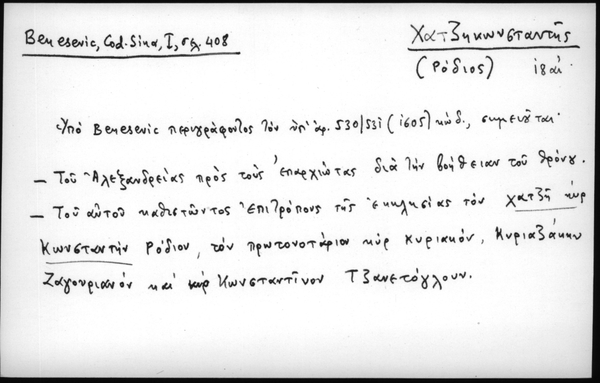 Benesevic, Cod. Sina, I, σελ. 408
Χατζηκωνσταντῆς
(Ρόδιος) 18 αἰ.
Ὑπὸ Benesevic περιγράφοντος τὸν ὑπ' ἀρ. 530/531 (1605) κώδ., σημειοῦται·
— Τοῦ Ἀλεξανδρείας πρὸς τοὺς ἐπαρχιώτας διὰ τὴν βοήθειαν τοῦ θρόνου.
— Τοῦ αὐτοῦ καθιστῶντος ἐπιτρόπους τῆς ἐκκλησίας τὸν χατζῆ κὺρ
Κωνσταντὴν Ρόδιον, τὸν πρωτονοτάριον κὺρ Κυριακόν, Κυριαζάκην
Ζαγουριανόν καὶ κὺρ Κωνσταντῖνον Τζανετόγλουν.